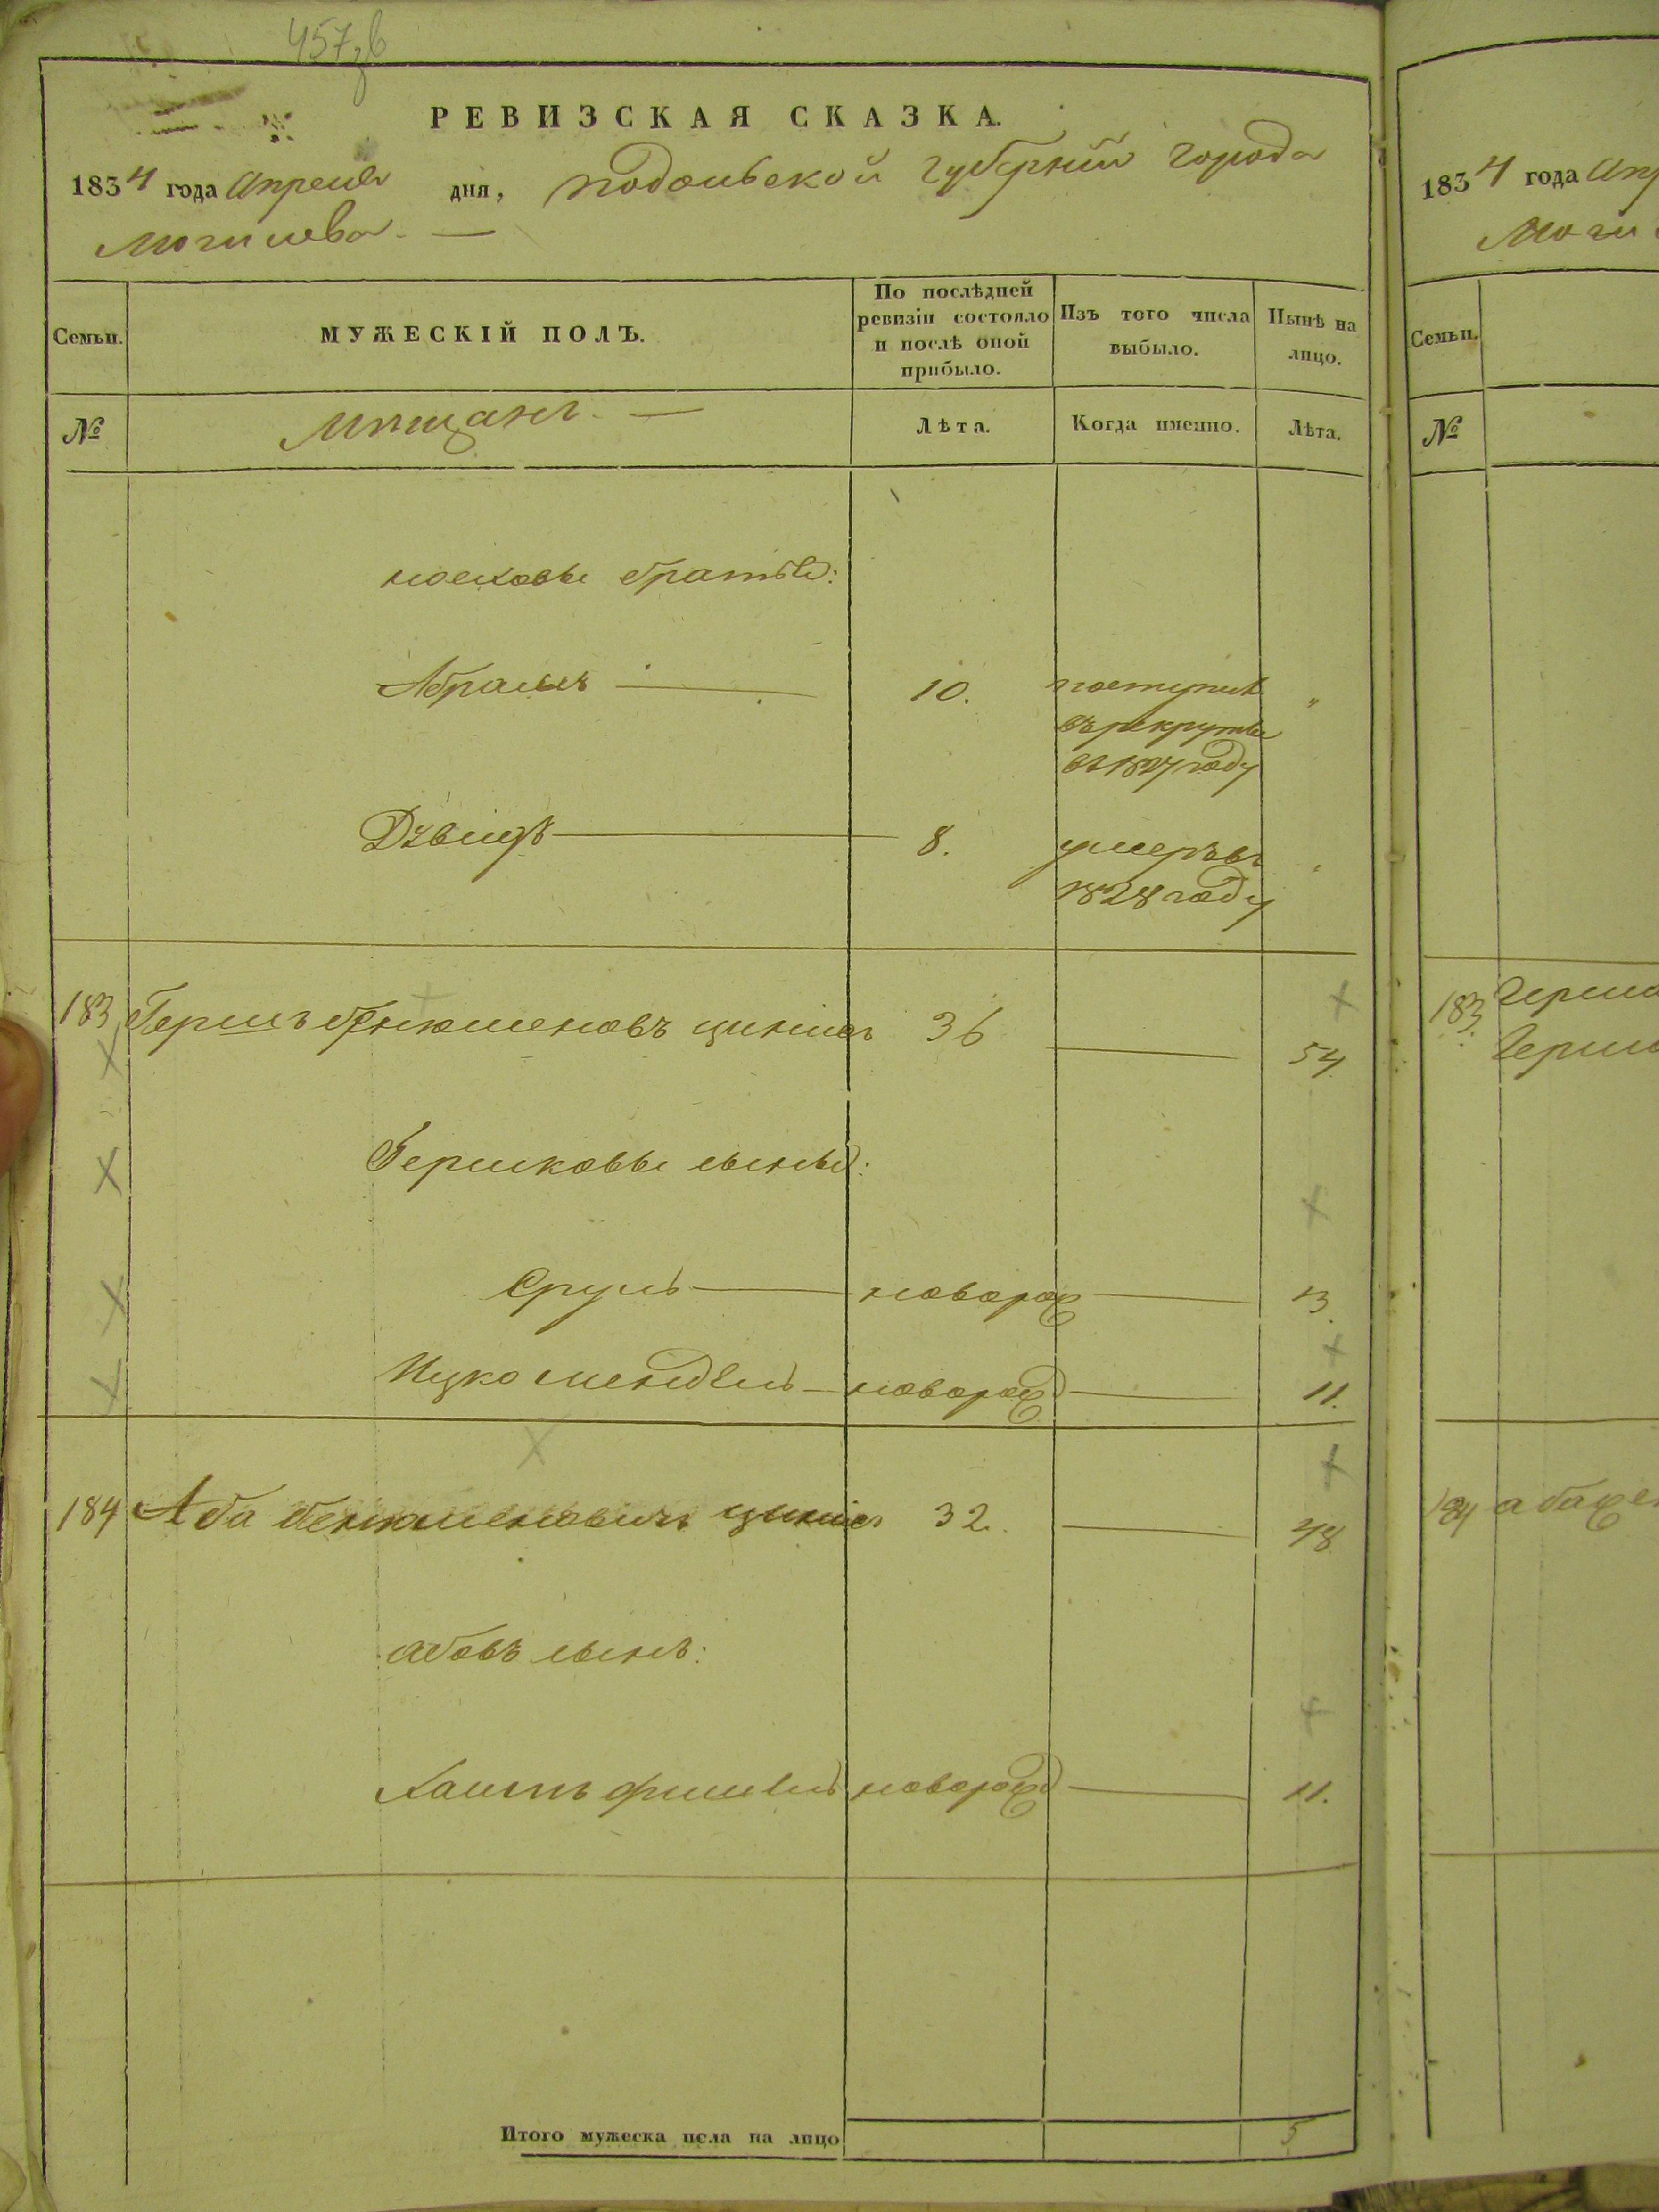 457 зв
РЕВИЗСКАЯ СКАЗКА.
1834 года Апреля дня, Подольской Губернии города
Могилева. —
Семьи.
МУЖЕСКІЙ ПОЛЪ.
По послѣдней
ревизіи состояло
и послѣ оной
прибыло.
Изъ того числа
выбыло.
Нынѣ на
лицо.
№
Мещане. —
Лѣта.
Когда именно.
Лѣта.
братья:
Абрамъ — 10. поступил "
въ рекруты
въ 1827 году
8. умеръ въ "
1828 году
183 Гершъ 36 — 54.
Гершковы сыны:
Сруль — новорож — 13.
Ицко Мендель — новорожд — 11.
184 Аба 32. — 48
Абовъ сынъ:
Хаимъ Фишель новорожд — 11.
Итого мужеска пола на лицо 5
1834 года Апр
Моги
Семьи.
№
183.
184